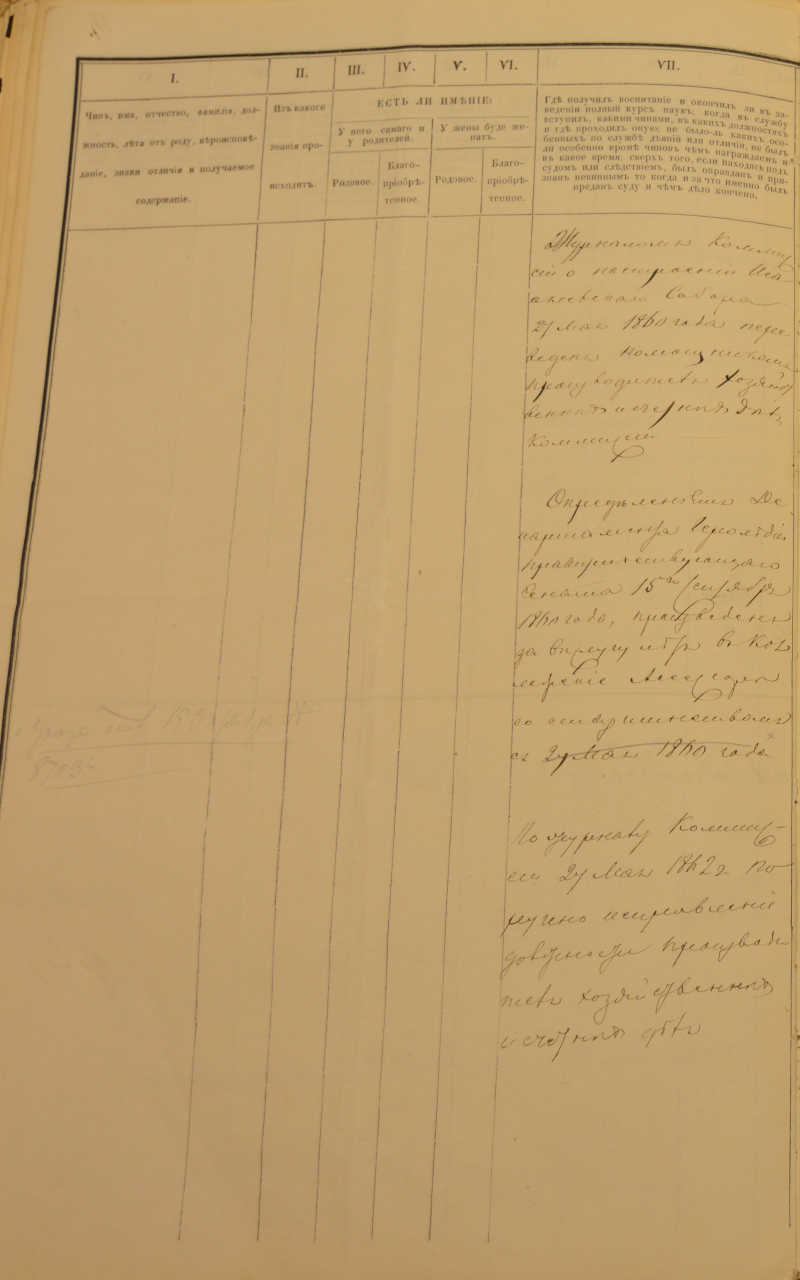 I.
II.
III.
IV.
V.
VI.
VII.
Чинъ, имя, отчество, фамилія, дол-
жность, лѣта отъ роду, вѣроисповѣ-
даніе, знаки отличія и получаемое
содержаніе.
Изъ какого
званія про-
исходитъ.
ЕСТЬ ЛИ ИМѢНІЕ:
У него самаго и
у родителей.
У жены буде же-
натъ.
Родовое.
Благо-
пріобрѣ-
тенное.
Родовое.
Благо-
пріобрѣ-
тенное.
Гдѣ получилъ воспитаніе и окончилъ ли въ за-
веденіи полный курсъ наукъ, когда въ службу
вступилъ, какими чинами, въ какихъ должностяхъ
и гдѣ проходилъ оную; не было-ль какихъ осо-
бенныхъ по службѣ дѣяній или отличій, не былъ
ли особенно кромѣ чиновъ чѣмъ награждаемъ и
въ какое время; сверхъ того, если находясь подъ
судомъ или слѣдствіемъ, былъ оправданъ и при-
знанъ невиннымъ то когда и за что именно былъ
преданъ суду и чѣмъ дѣло кончено.
Журналомъ Коммис
сіи о построеніи Иса
акіевскаго Собора
27 Мая 1860 года пере
веденъ Помощникомъ
производителя хозяйст
венныхъ и счетныхъ дѣлъ
Коммиссіи
Опредѣленіемъ Де
партамента Герольдіи
Правительствующаго
Сената 15 Сентября
1860 года, произведенъ
за выслугу лѣтъ въ Кол
лежскіе Ассесоры
со старшинствомъ
съ 27 Мая 1860 года
По журналу Коммис-
сіи 27 Мая 1862 г. по
ручено исправленіе
должности производи
теля хозяйственныхъ
и счетныхъ дѣлъ